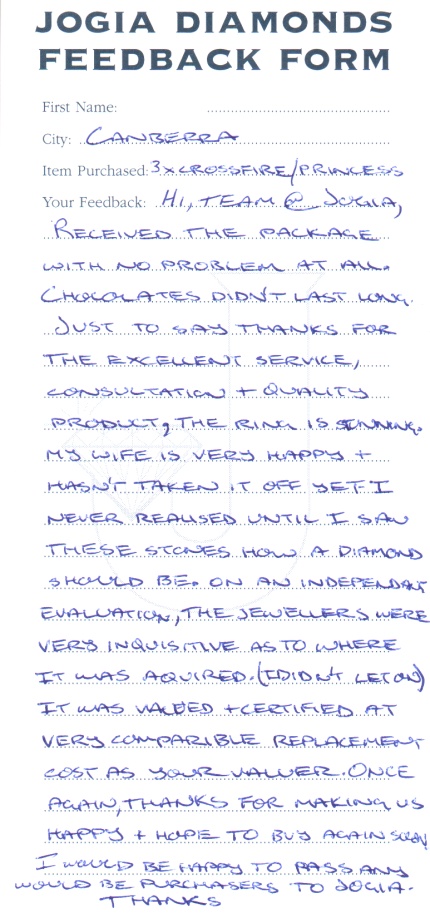 JOGIA DIAMONDS
FEEDBACK FORM
First Name:
City: CANBERRA
Item Purchased: 3 x CROSSFIRE/PRINCESS
Your Feedback: HI, TEAM @ JOGIA,
RECEIVED THE PACKAGE
WITH NO PROBLEM AT ALL.
CHOCOLATES DIDN'T LAST LONG.
JUST TO SAY THANKS FOR
THE EXCELLENT SERVICE,
CONSULTATION + QUALITY
PRODUCT, THE RING IS
MY WIFE IS VERY HAPPY +
HASN'T TAKEN IT OFF YET. I
NEVER REALISED UNTIL I SAW
THESE STONES HOW A DIAMOND
SHOULD BE. ON AN INDEPENDANT
EVALUATION, THE JEWELLERS WERE
VERY INQUISITIVE AS TO WHERE
IT WAS AQUIRED. (I DIDN'T LET ON)
IT WAS VALUED + CERTIFIED AT
VERY COMPARIBLE REPLACEMENT
COST AS YOUR VALUER. ONCE
AGAIN, THANKS FOR MAKING US
HAPPY + HOPE TO BUY AGAIN SOON
I WOULD BE HAPPY TO PASS ANY
WOULD BE PURCHASERS TO JOGIA.
THANKS